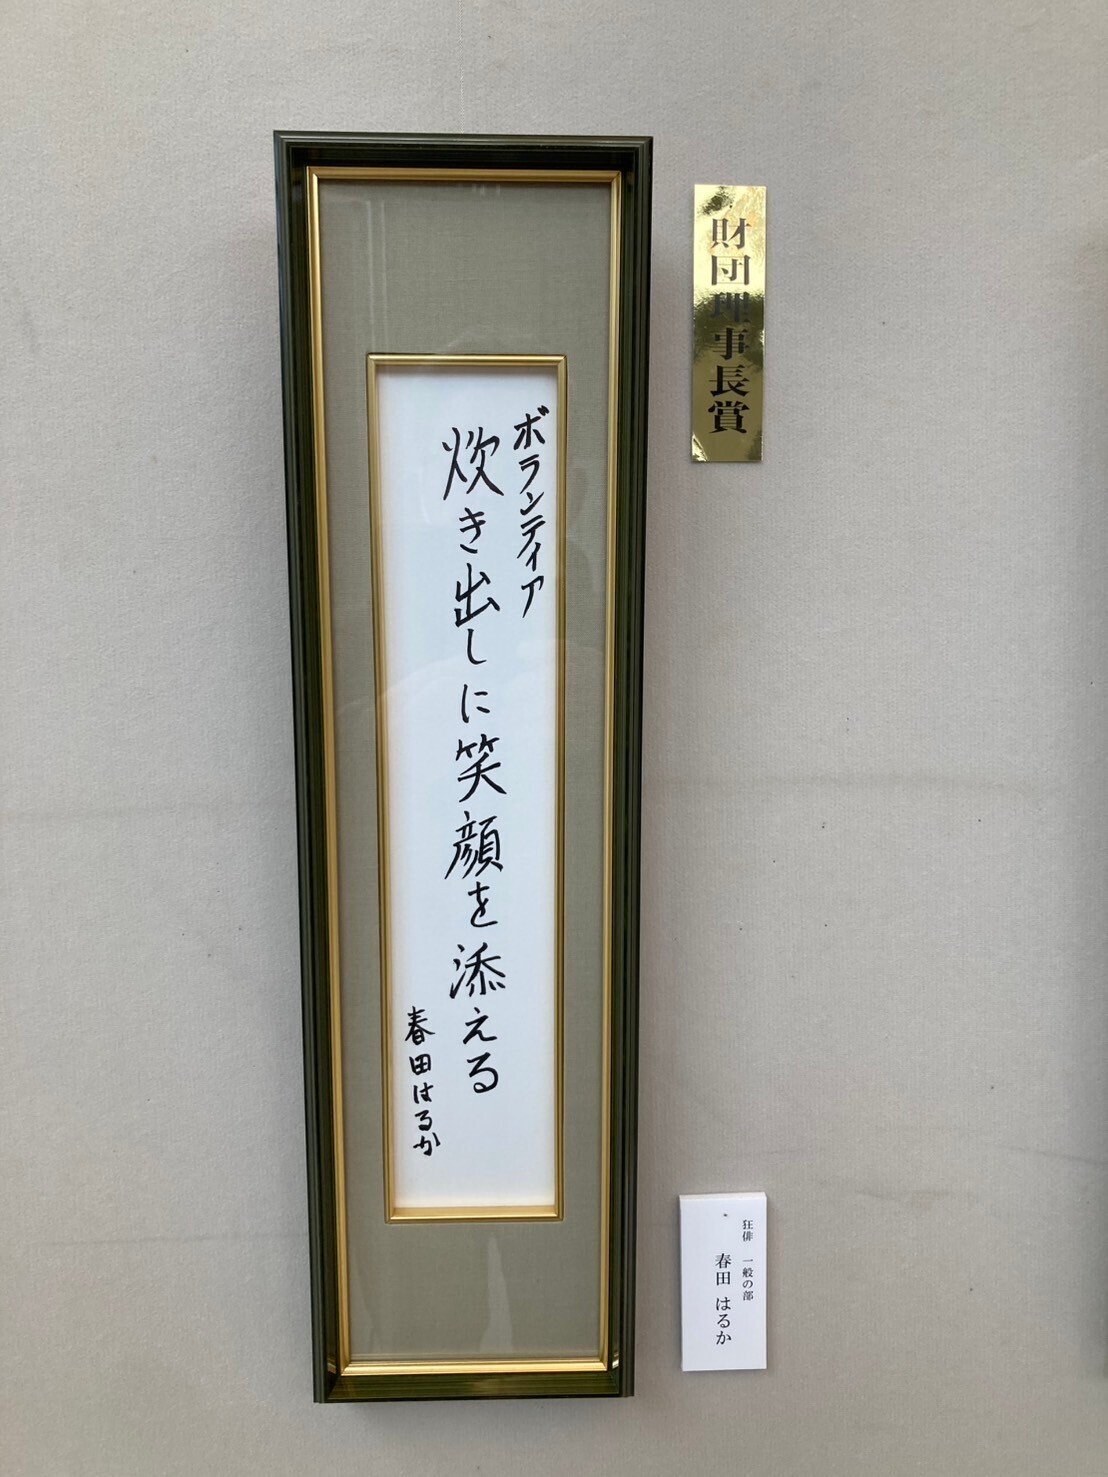 ボランティア
炊き出しに笑顔を添える
春田はるか
財団理事長賞
狂俳 一般の部
春田 はるか